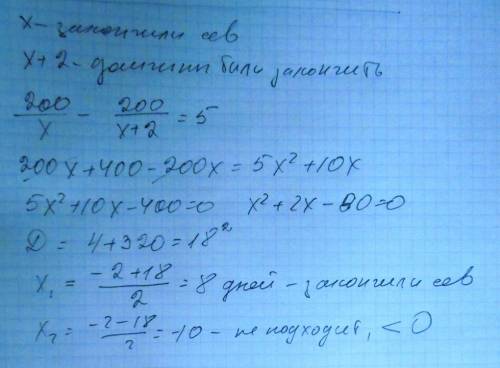 x - закончили сев
x + 2 - должны были закончить
200/x - 200/(x+2) = 5
200x + 400 - 200x = 5x² + 10x
5x² + 10x - 400 = 0 x² + 2x - 80 = 0
D = 4 + 320 = 18²
x₁ = (-2+18)/2 = 8 дней - закончили сев
x₂ = (-2-18)/2 = -10 - не подходит, < 0